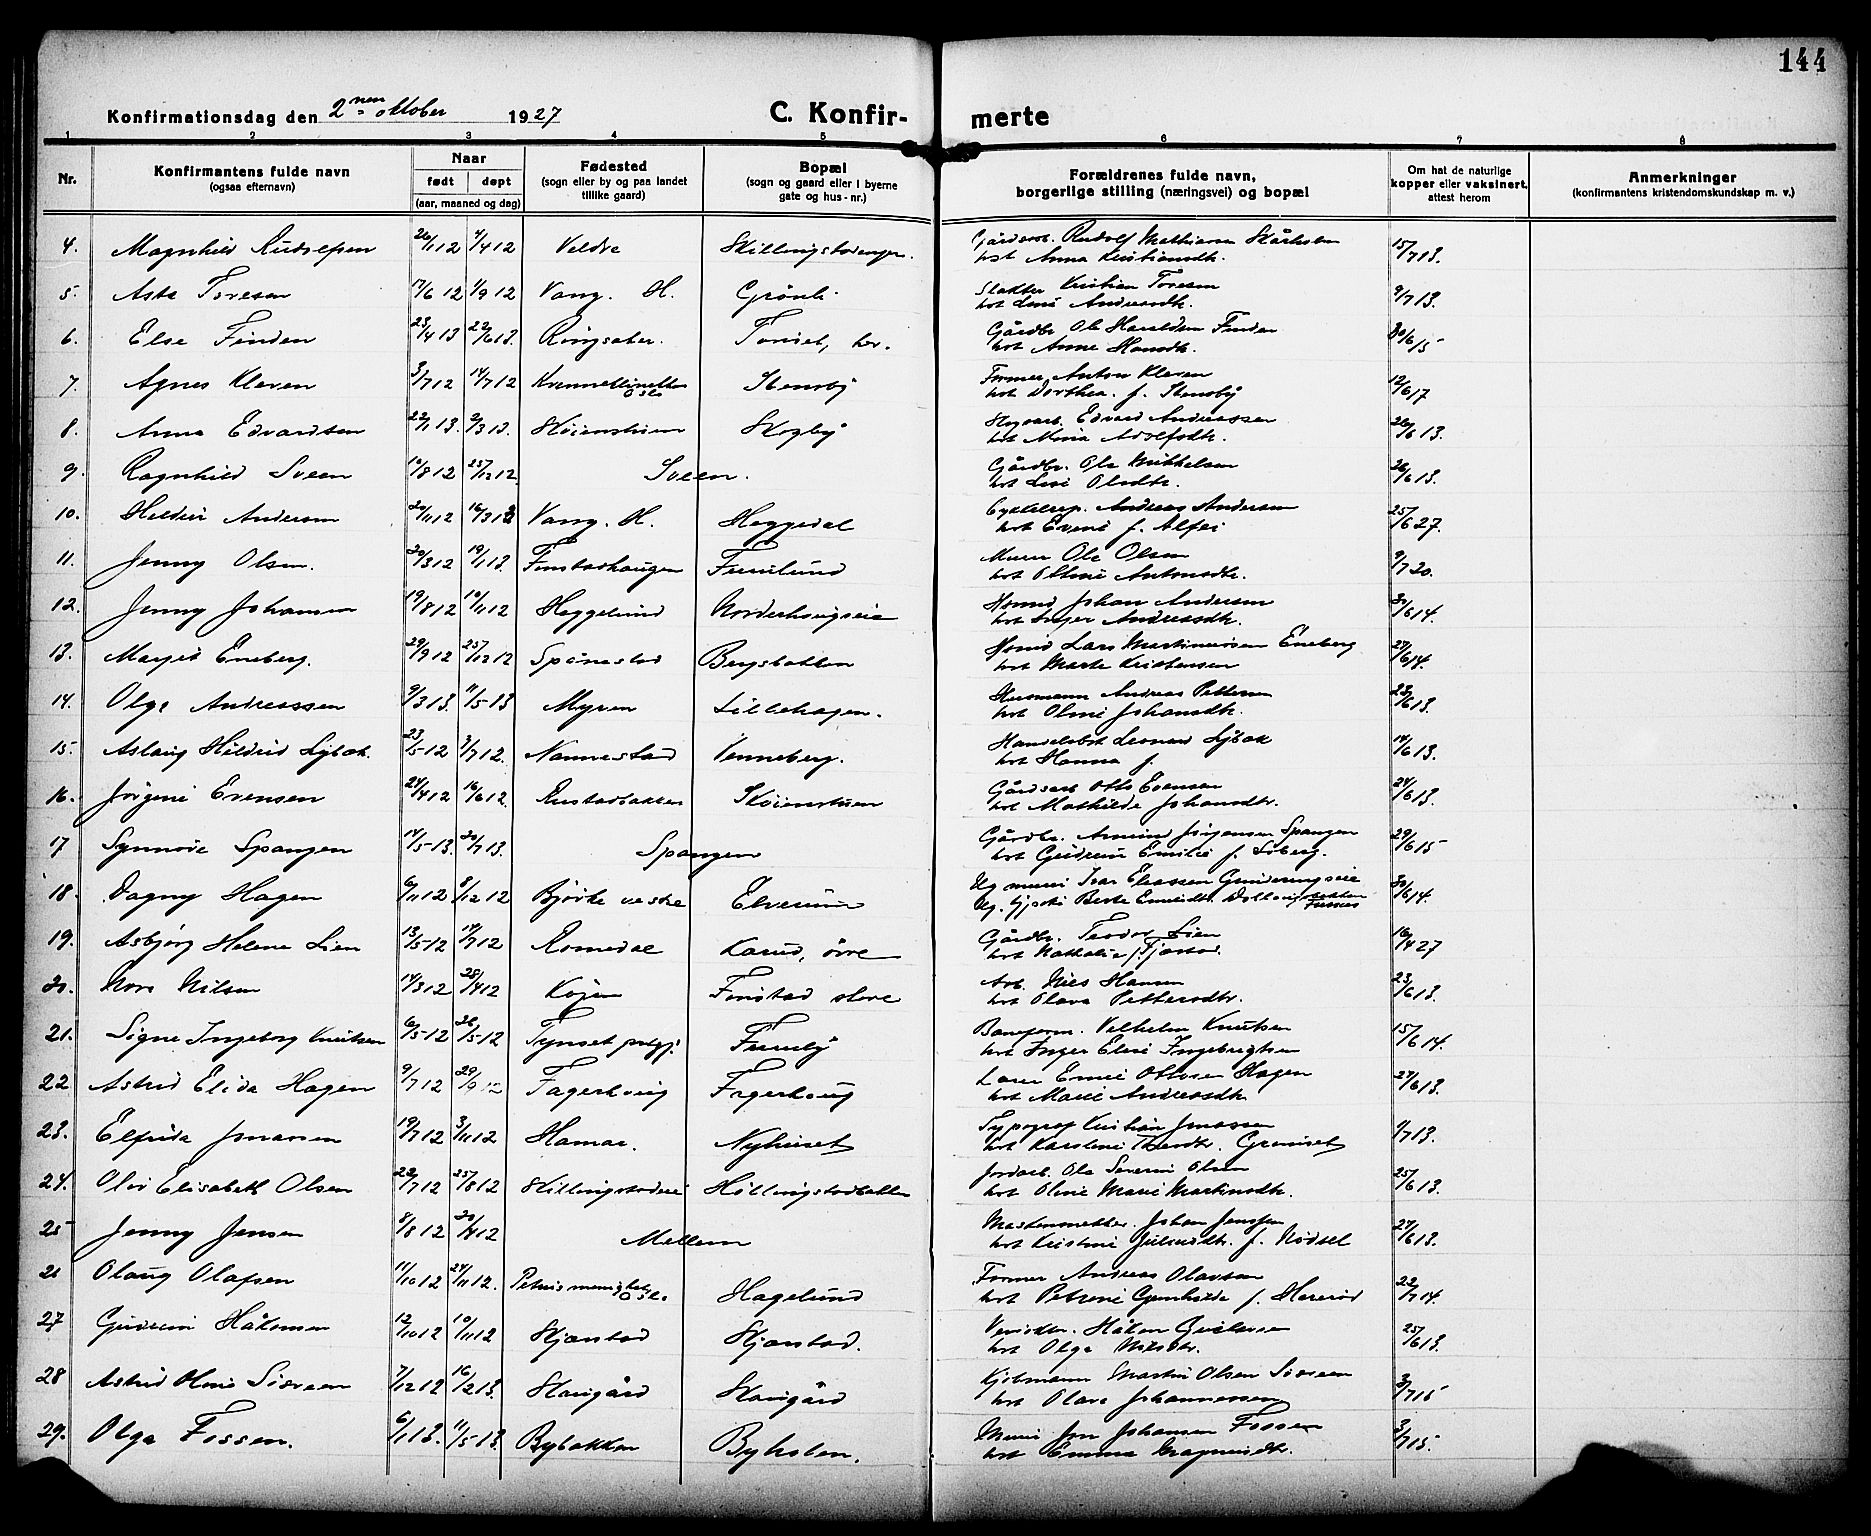 144
Konfirmationsdag den 2nen oktober 1927
C. Konfir- merte
1 2 3 4 5 6 7 8
Nr.
Konfirmantens fulde navn
(ogsaa efternavn)
Naar
født døpt
(aar, maaned og dag)
Fødested
(sogn eller by og paa landet
tillike gaard)
Bopæl
(sogn og gaard eller i byerne
gate og hus-nr.)
Forældrenes fulde navn,
borgerlige stilling (næringsvei) og bopæl
Om hat de naturlige
kopper eller vaksinert,
attest herom
Anmerkninger
(konfirmantens kristendomskundskap m. v.)
4. Magnhild Rudolfsen 26/1 12 4/4 12 Veldre Skillingstadengen. Gårdsarb. Rudolf Mathiasen
hst Anna Kristiansdtr. 15/7 13.
5. Asta Toresen 17/6 12 1/9 12 Vang. H. Grønli Slakter Kristian Toresen
hst Lina Andersdtr. 9/7 13.
6. Else Finden 23/4 13 22/6 13. Ringsaker. Torset, Gårdbr. Ole Haraldsen Finden
hst Anne Hansdtr. 30/6 15
7. Agnes Kleven 3/7 12 14/7 12 Oslo Stensby Former Anton Kleven
hst Dorthea f. Stensby 12/6 17
8. Anna Edvardsen 22/1 13. 2/3 13. Skøienstuen Skogby Skogsarb. Edvard Andreassen
hst Maria Adolfsdtr. 26/6 13.
9. Ragnhild Sveen 10/8 12 25/12 12 Sveen. Gårdbr. Ole Mikkelsen
hst Lise Olsdtr. 26/6 13.
10. Andersen 20/11 12 16/3 13 Vang. H. Heggedal Cykkelrep. Andreas Andersen
hst f. Alfei 25/6 27.
11. Jenny Olsen. 20/3 12 19/1 13. Finstadhaugen Furulund Murer Ole Olsen
hst Oline Antonsdtr. 9/7 20.
12. Jenny Johansen 19/8 12 10/11 12 Heggelund Norderhaugseie Johan Andersen
hst Inger Andreasdtr. 30/6 14.
13. Margit Eneberg. 29/9 12 25/12 12 Spånestad Bergsbakken Lars Martiniusen Eneberg
hst Marte Kristensen 27/6 14.
14. Olga Andreassen 9/3 13. 11/5 13 Myren Lillehagen. Husmann Andreas Pettersen
hst Oline Johansdtr. 23/6 13.
15. Aslaug Hildrid Lybæk. 23/5 12 3/7 12. Nannestad Venneberg. Leonard Lybæk
hst Hanna f. 14/6 13.
16. Jørgine Evensen 24/4 12 16/6 12. Rustadbakken Skøienstuen Gårdsarb Otto Evensen
hst Mathilde Johansdtr. 24/6 13.
17 Synnøve Spangen 14/5 13. 20/7 13. Spangen Gårdbr. Arneus Jørgensen Spangen
hst Gudrun Emilie f. Loberg. 29/6 15
18. Dagny Hagen 6/11 12 8/12 12 Bjørke vestre Elverum Ug. murer Ivar Eliassen
Ug. Berte 30/6 14.
19. Asbjørg Helene Lien 13/5 12 14/7 12 Romedal Karud, øvre Gårdbr. Teodor Lien
hst Nathalie f. 16/4 27
20. Nora Nilsen 14/3 12 28/4 12 Kojen Finstad store Arb. Niels Hansen
hst Olava Pettersdtr. 23/6 13.
21. Signe Ingeborg Knutsen 6/5 12 26/5 12 Tynset prgj. Furuby Baneform. Vilhelm Knutsen
hst Inger Eline Ingebrigtsen 15/6 14.
22 Astrid Elida Hagen 9/7 12 29/9 12 Fagerhaug Fagerhaug Ottosen Hagen
hst Marie Andreasdtr. 27/6 13.
23. Elfrida Jonassen 19/7 12 3/11 12 Hamar. Nyhuset Typograf Kristian Jonassen
hst Karoline 1/7 13.
24. Olvi Elisabeth Olsen 22/7 12 25/8 12 Skillingstadeie Hollingstadbakken Jordarb. Ole Severin Olsen
hst Oline Marie Martinsdtr. 25/6 13.
25 Jenny Jensen 8/8 12 20/4 12 Mellem Johan Jensen
hst Kristine Juliusdtr. f. Nødsel 27/6 13.
26 Olaug Olafsen 11/10 12 24/11 12. Petrus menighet Oslo Hagelund Former Andreas Olavsen
hst Petrine Gunhilde f. 22/7 14.
27 Gudrun Håkonsen 12/10 12 10/11 12 Skjærstad Skjærstad. Håkon Gulbransen
hst Olga Nilsdtr. 25/6 13.
28 Astrid Oline Siversen 7/12 12 16/2 13. Haugård Haugård Kjøbmann Martin Olsen Siversen
hst Olava Johannessen 3/7 15
29. Olga Fossen. 6/1 13. 11/5 13. Bybakken Byholen. Murer Jon Johansen Fossen
hst Emma Magnusdtr. 3/7 15.